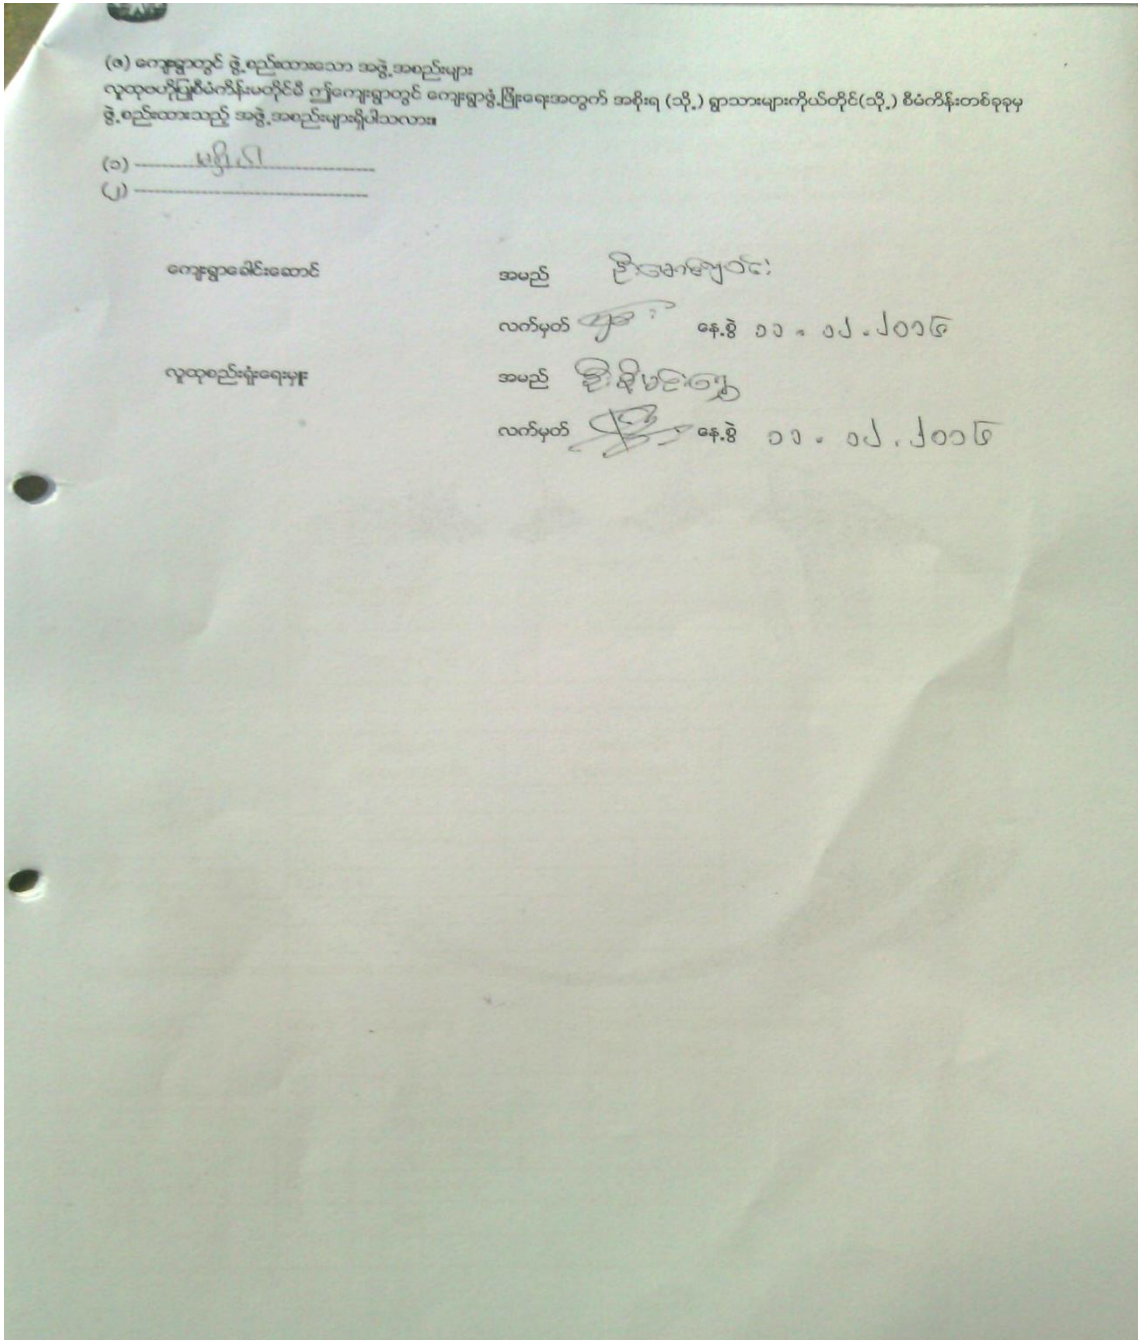 (ဇ) ကျေးရွာတွင် ဖွဲ့စည်းထားသော အဖွဲ့အစည်းများ
လူထုဗဟိုပြုစီမံကိန်းမတိုင်မီ ဤကျေးရွာတွင် ကျေးရွာဖွံ့ဖြိုးရေးအတွက် အစိုးရ (သို့) ရွာသားများကိုယ်တိုင်(သို့) စီမံကိန်းတစ်ခုခုမှ
ဖွဲ့စည်းထားသည့် အဖွဲ့အစည်းများရှိပါသလား။
(၁) မရှိပါ
(၂)
ကျေးရွာခေါင်းဆောင် အမည် ဦးမောင်ဗျင်း
လက်မှတ် နေ့စွဲ ၁၁.၁၂.၂၀၁၆
လူထုစည်းရုံးရေးမှူး အမည်
လက်မှတ် နေ့စွဲ ၁၁.၁၂.၂၀၁၆